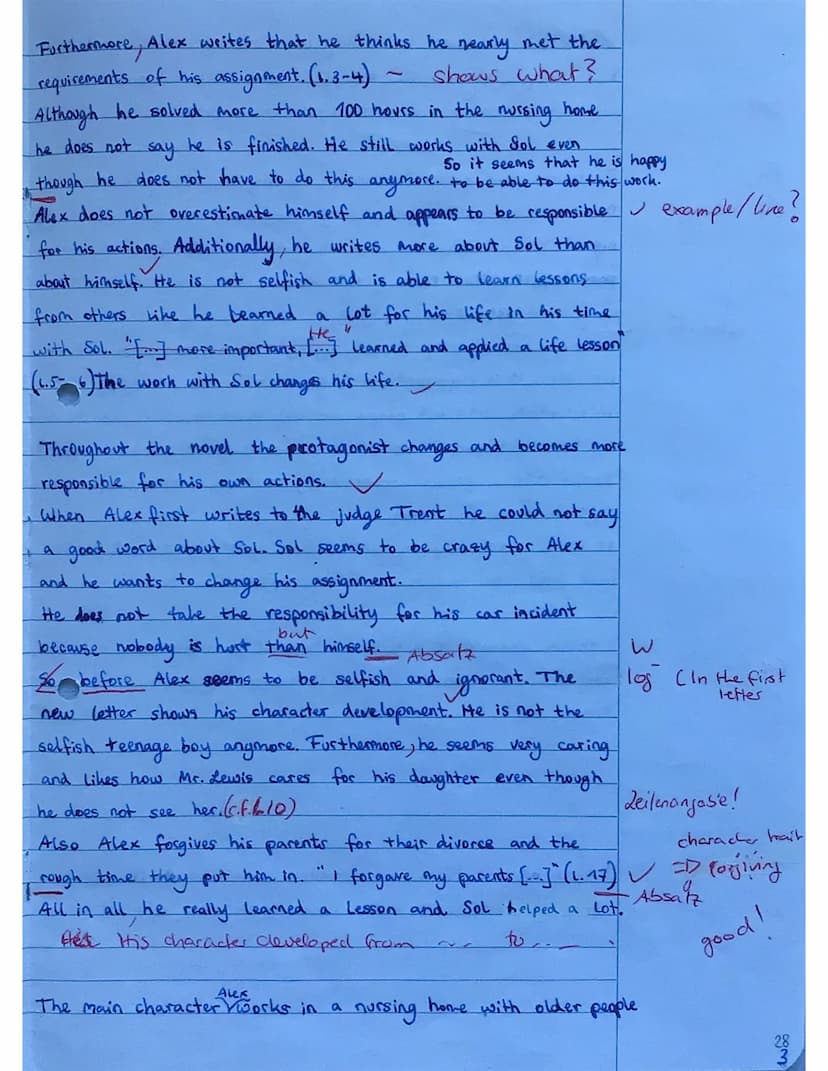 Furthermore, Alex writes that he thinks he nearly met the
requirements of his assignment. (l. 3-4) ~ shows what?
Although he solved more than 100 hours in the nursing home
he does not say he is finished. He still works with Sol even
So it seems that he is happy
though he does not have to do this anymore. to be able to do this work.
Alex does not overestimate himself and appears to be responsible ✓ example/line?
for his actions. Additionally, he writes more about Sol than
about himself. He is not selfish and is able to learn lessons
from others like he learned a lot for his life in his time
He "
with Sol. "[...] more important, [...] learned and applied a life lesson"
(l. 5-6) The work with Sol changes his life.
Throughout the novel the protagonist changes and becomes more
responsible for his own actions. ✓
When Alex first writes to the judge Trent he could not say
a good word about Sol. Sol seems to be crazy for Alex
and he wants to change his assignment.
He does not take the responsibility for his car incident
but
because nobody is hurt than himself. Absatz W
So before Alex seems to be selfish and ignorant. The log (In the first
letter
new letter shows his character development. He is not the
selfish teenage boy anymore. Furthermore, he seems very caring
and likes how Mr. Lewis cares for his daughter even though
he does not see her. (c.f. l. 10) Zeilenangabe!
Also Alex forgives his parents for their divorce and the character trait
rough time they put him in. "I forgave my parents [...]" (l. 17) ✓ => forgiving
Absatz
All in all, he really learned a lesson and Sol helped a lot.
good!
His character developed from ... to ... .
Alex
The main character works in a nursing home with older people
28
3